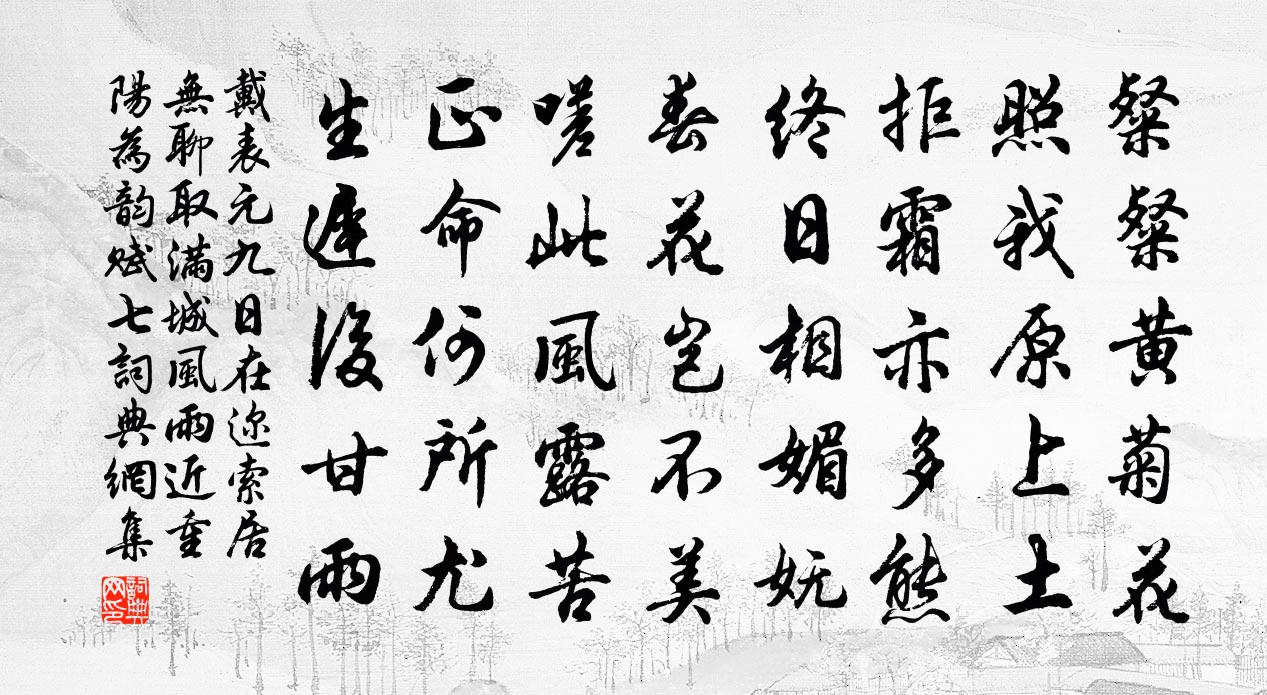 粲粲黄菊花
照我原上土
拒霜亦多態
終日相媚嫵
春花豈不美
嗟此風露苦
正命何所尤
生遲後甘雨
戴表元九日在迩索居
無聊取滿城風雨近重
陽為韵賦七詞典網集
詞典網印